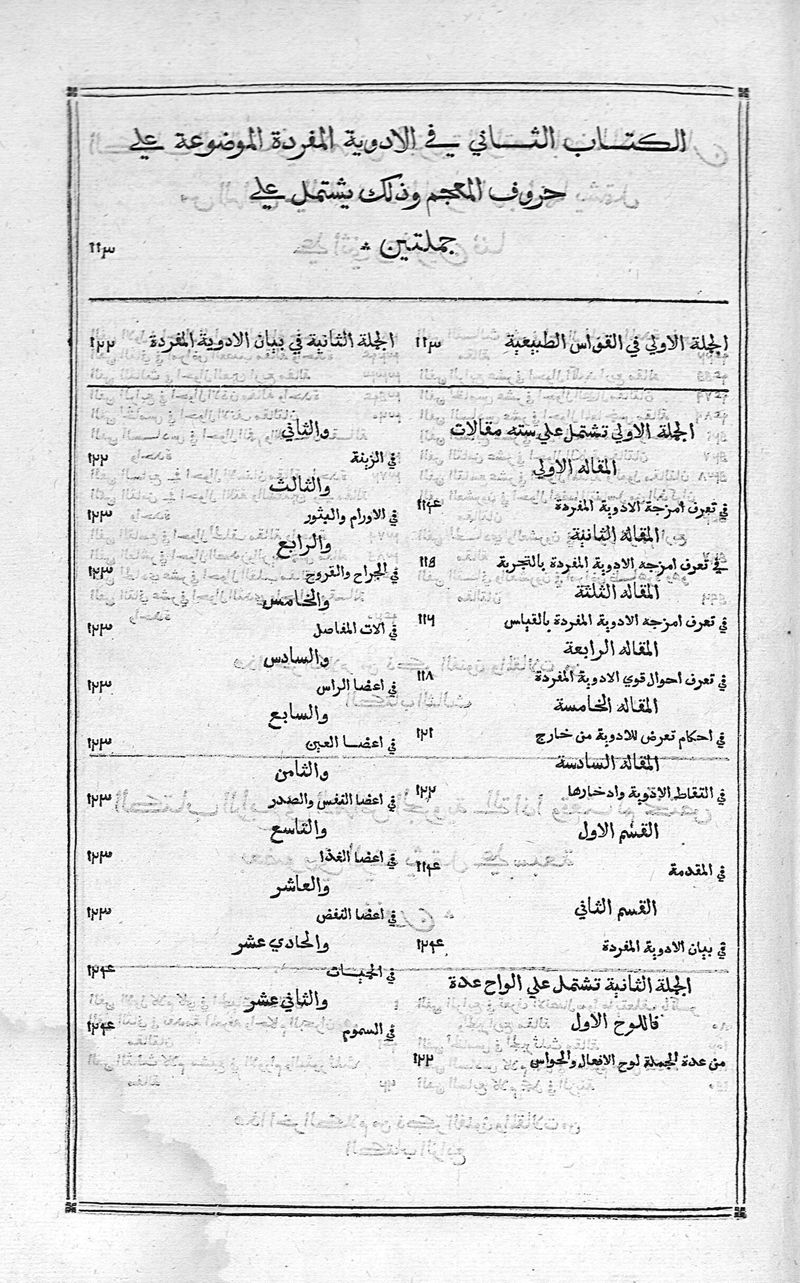 الكتاب الثاني في الادوية المفردة الموضوعة علي
حروف المعجم وذلك يشتمل علي
جملتين * ١١٣
الجملة الاولي في القواس الطبيعية ١١٣
الجملة الثانية في بيان الادوية المفردة ١٢٢
الجملة الاولي تشتمل علي سته مقالات
المقاله الاولي
في تعرف امزجة الادوية المفردة ١١۴
المقالة الثانية
في تعرف امزجه الادوية المفردة بالتجربة ١١٥
المقاله الثلثة
في تعرف امزجه الادوية المفردة بالقياس ١١٦
المقاله الرابعة
في تعرف احوال قوي الادوية المفردة ١١٨
المقاله الخامسة
في احكام تعرض للادوية من خارج ١٢١
المقاله السادسة
في التقاط الادوية وادخارها ١٢٢
القسم الاول
في المقدمة ١١۴
القسم الثاني
في بيان الادوية المفردة ١٢۴
الجملة الثانية تشتمل علي الواح عدة
فاللوح الاول
من عدة الجملة لوح الافعال والحواس ١٢٢
والثاني
في الزينة ١٢٢
والثالث
في الاورام والبثور ١٢٣
والرابع
في الجراح والقروح ١٢٣
والخامس
في الات المفاصل ١٢٣
والسادس
في اعضا الراس ١٢٣
والسابع
في اعضا العين ١٢٣
والثامن
في اعضا النفس والصدر ١٢٣
والتاسع
في اعضا الغذا ١٢٣
والعاشر
في اعضا النفض ١٢٣
والحادي عشر
في الحميات ١٢۴
والثاني عشر
في السموم ١٢۴